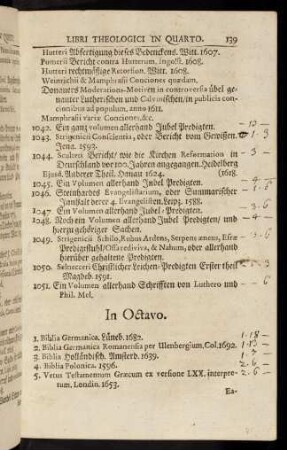 LIBRI THEOLOGICI IN QUARTO. 139
Hutteri Abfertigung dieses Bedenckens. Witt. 1607.
Pomerii Bericht contra Hutterum, Ingolst. 1608.
Hutteri rechtmäßige Retorsion. Witt. 1608.
Weinrichii & Mamphrasii Conciones quædam.
Donaueri Moderations-Motiven in controversia übel genanter
Lutherischen und Calvinischen, in publicis concionibus
ad populum, anno 1611.
Mamphrasii variæ Conciones, &c.
1042. Ein gantz volumen allerhand Jubel Predigten.
1043. Strigenii Conscientia, oder Bericht vom Gewissen.
Jena. 1593.
1044. Sculteti Bericht, wie die Kirchen Reformation in
Deutschland vor 100. Jahren angegangen. Heidelberg
Ejusd. Anderer Theil. Hanau 1624. (1618.
1045. Ein Volumen allerhand Jubel Predigten.
1046. Steinhardes Evangelistarium, oder Summarischer
Innhalt derer 4. Evangelisten. Leipz. 1588.
1047. Ein Volumen allerhand Jubel-Predigten.
1048. Noch ein Volumen allerhand Jubel Predigten, und
hierzu gehöriger Sachen.
1049. Strigenicii Schilo, Rubus Ardens, Serpens aneus,
& Nahum, oder allerhand
hierüber gehaltene Predigten.
1050. Selnecceri Christlicher Leichen-Predigten Erster theil
Magdeb. 1591.
1051. Ein Volumen allerhand Schrifften von Luthero und
Phil. Mel.
In Octavo.
1. Biblia Germanica. Lüneb. 1682. 1-18-
2. Biblia Germanica Romanensia per Ulenbergium, Col. 1692. 1-13-
3. Biblia Holländisch. Amsterd. 1639. -4-
4. Biblia Polonica. 1596. 2-6-
5. Vetus Testamentum Græcum ex versione LXX. interpretum,
Londin. 1653. 2-6-
Ea-